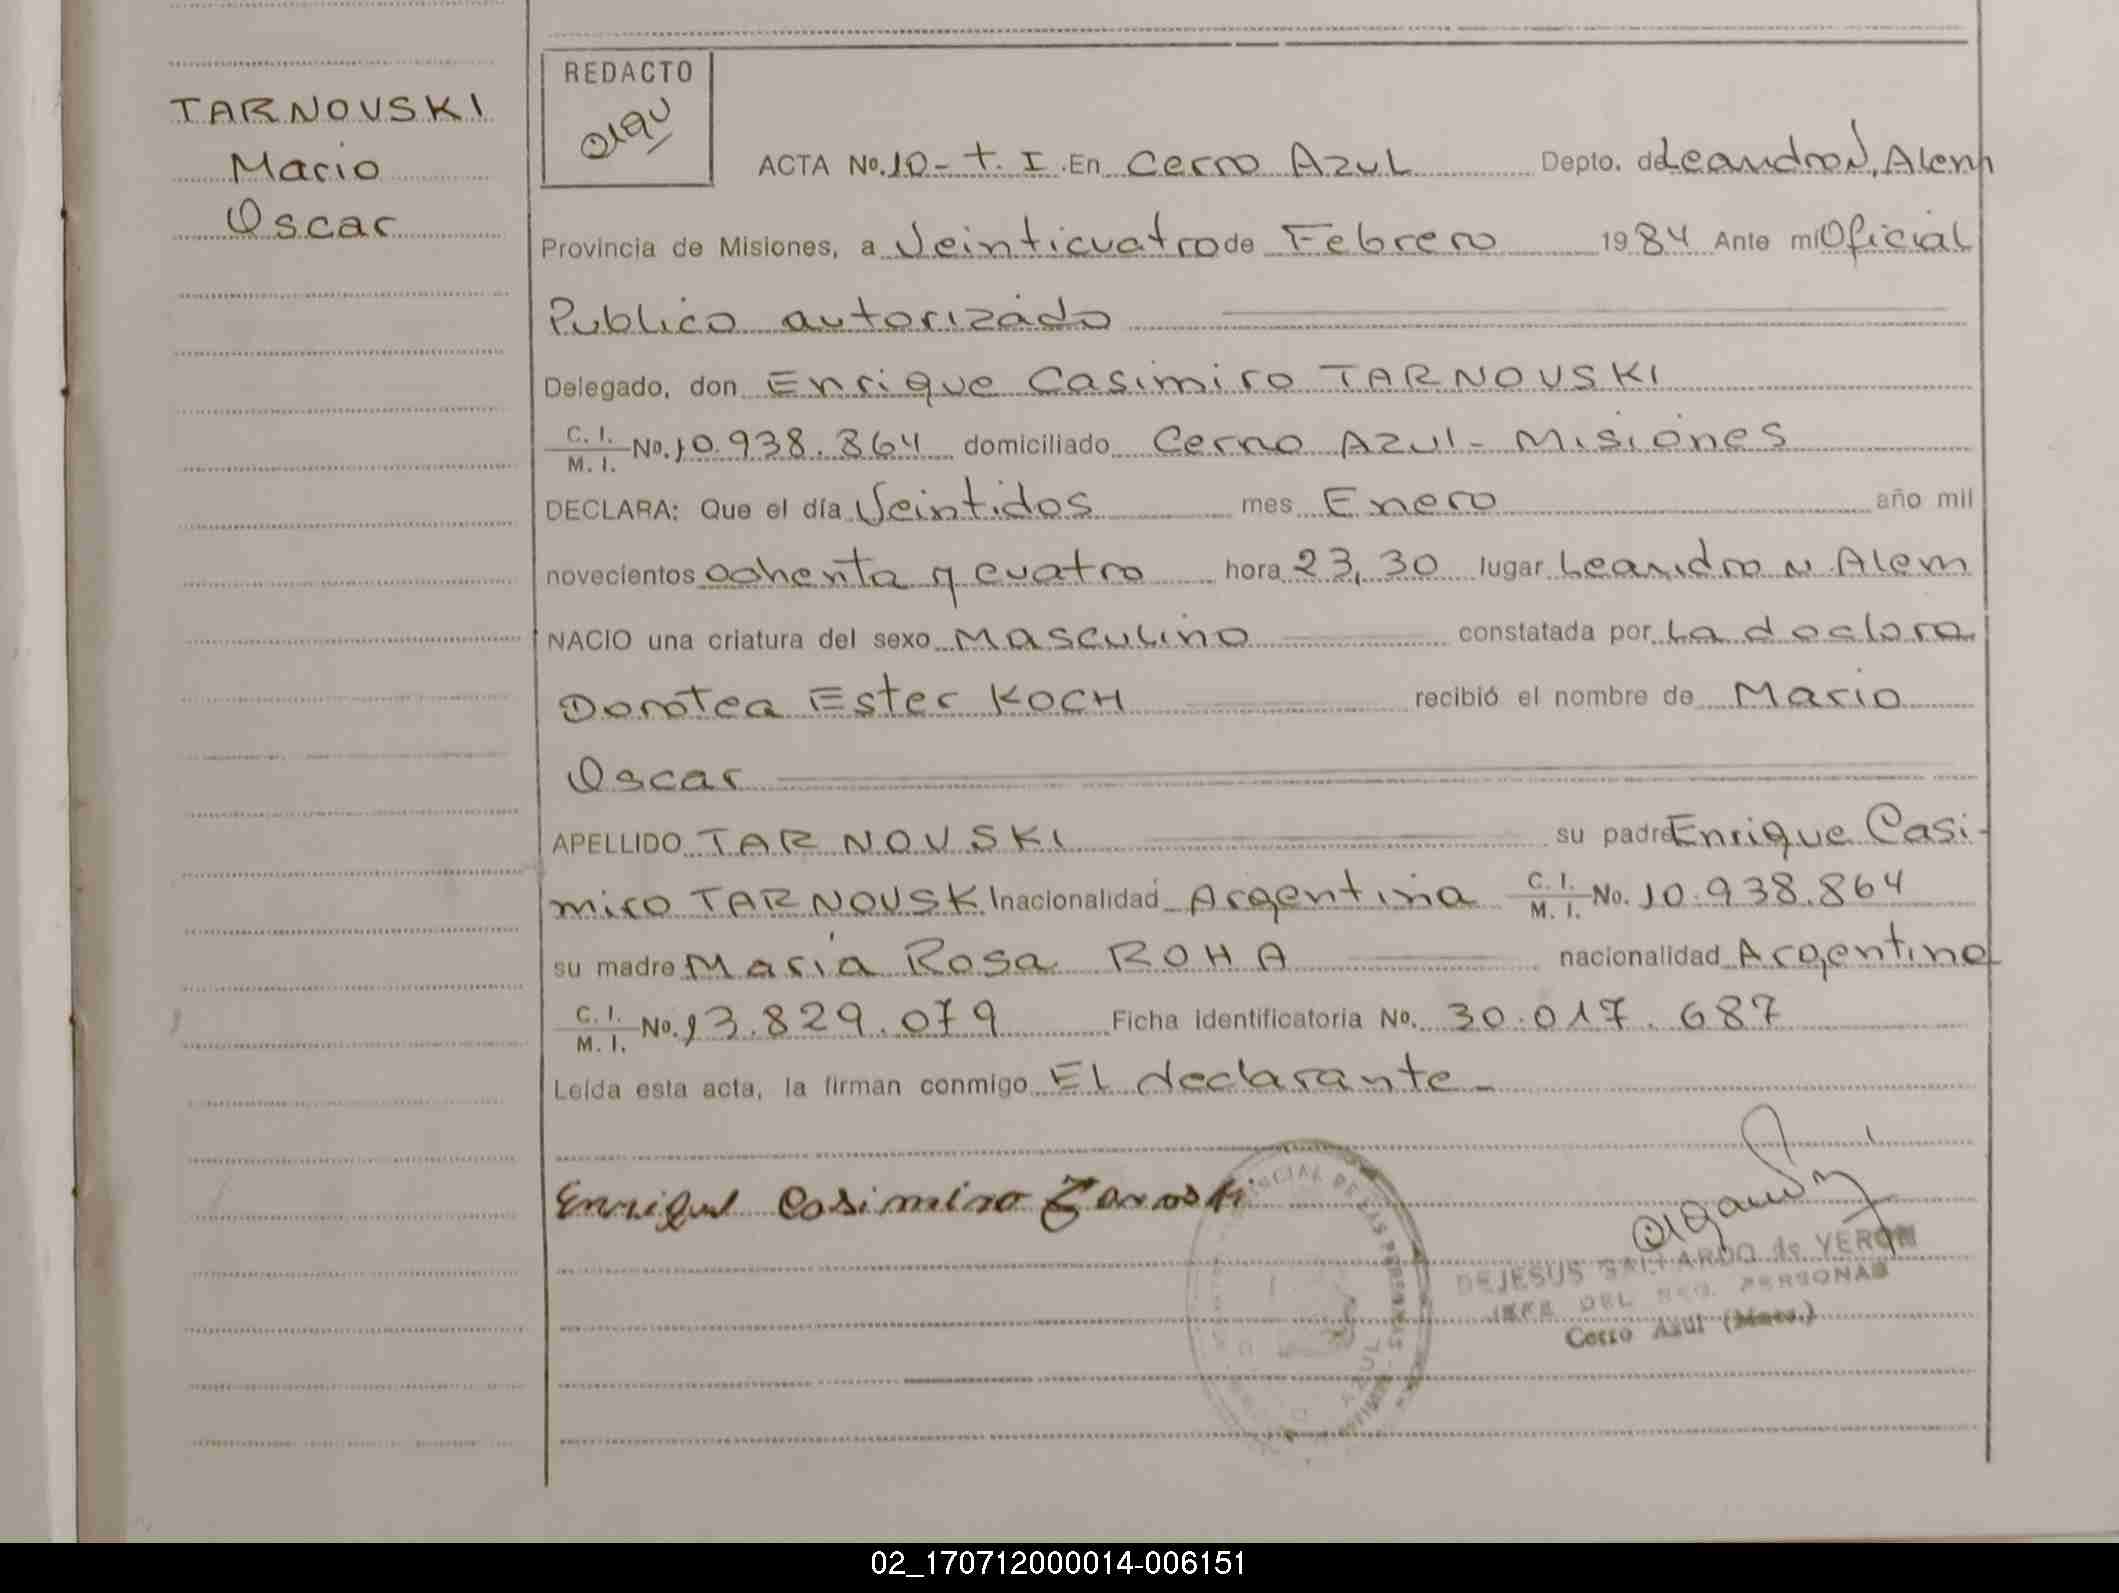 TARNOVSKI
Mario
Oscar
REDACTO
ACTA No. 10 - t. I. En Cerro Azul Depto. de Leandro N. Alem
Provincia de Misiones, a Veinticuatro de Febrero 1984 Ante mi Oficial
Publico autorizado
Delegado, don Enrique Casimiro TARNOVSKI
C. I.
M. I. No. 10.938.864 domiciliado Cerro Azul - Misiones
DECLARA: Que el día Veintidos mes Enero año mil
novecientos ochenta y cuatro hora 23,30 lugar Leandro N. Alem
NACIO una criatura del sexo Masculino constatada por La doctora
Dorotea Ester KOCH recibió el nombre de Mario
Oscar
APELLIDO TARNOVSKI su padre Enrique Casi-
miro TARNOVSKI nacionalidad Argentina C. I.
M. I. No. 10.938.864
su madre María Rosa ROHA nacionalidad Argentina
C. I.
M. I. No. 13.829.079 Ficha identificatoria No. 30.017.687
Leída esta acta, la firman conmigo El declarante -
Enrique Casimiro
DEJESUS de VERON
JEFE DEL REG. PERSONAS
Cerro Azul (Mnes.)
02_170712000014-006151